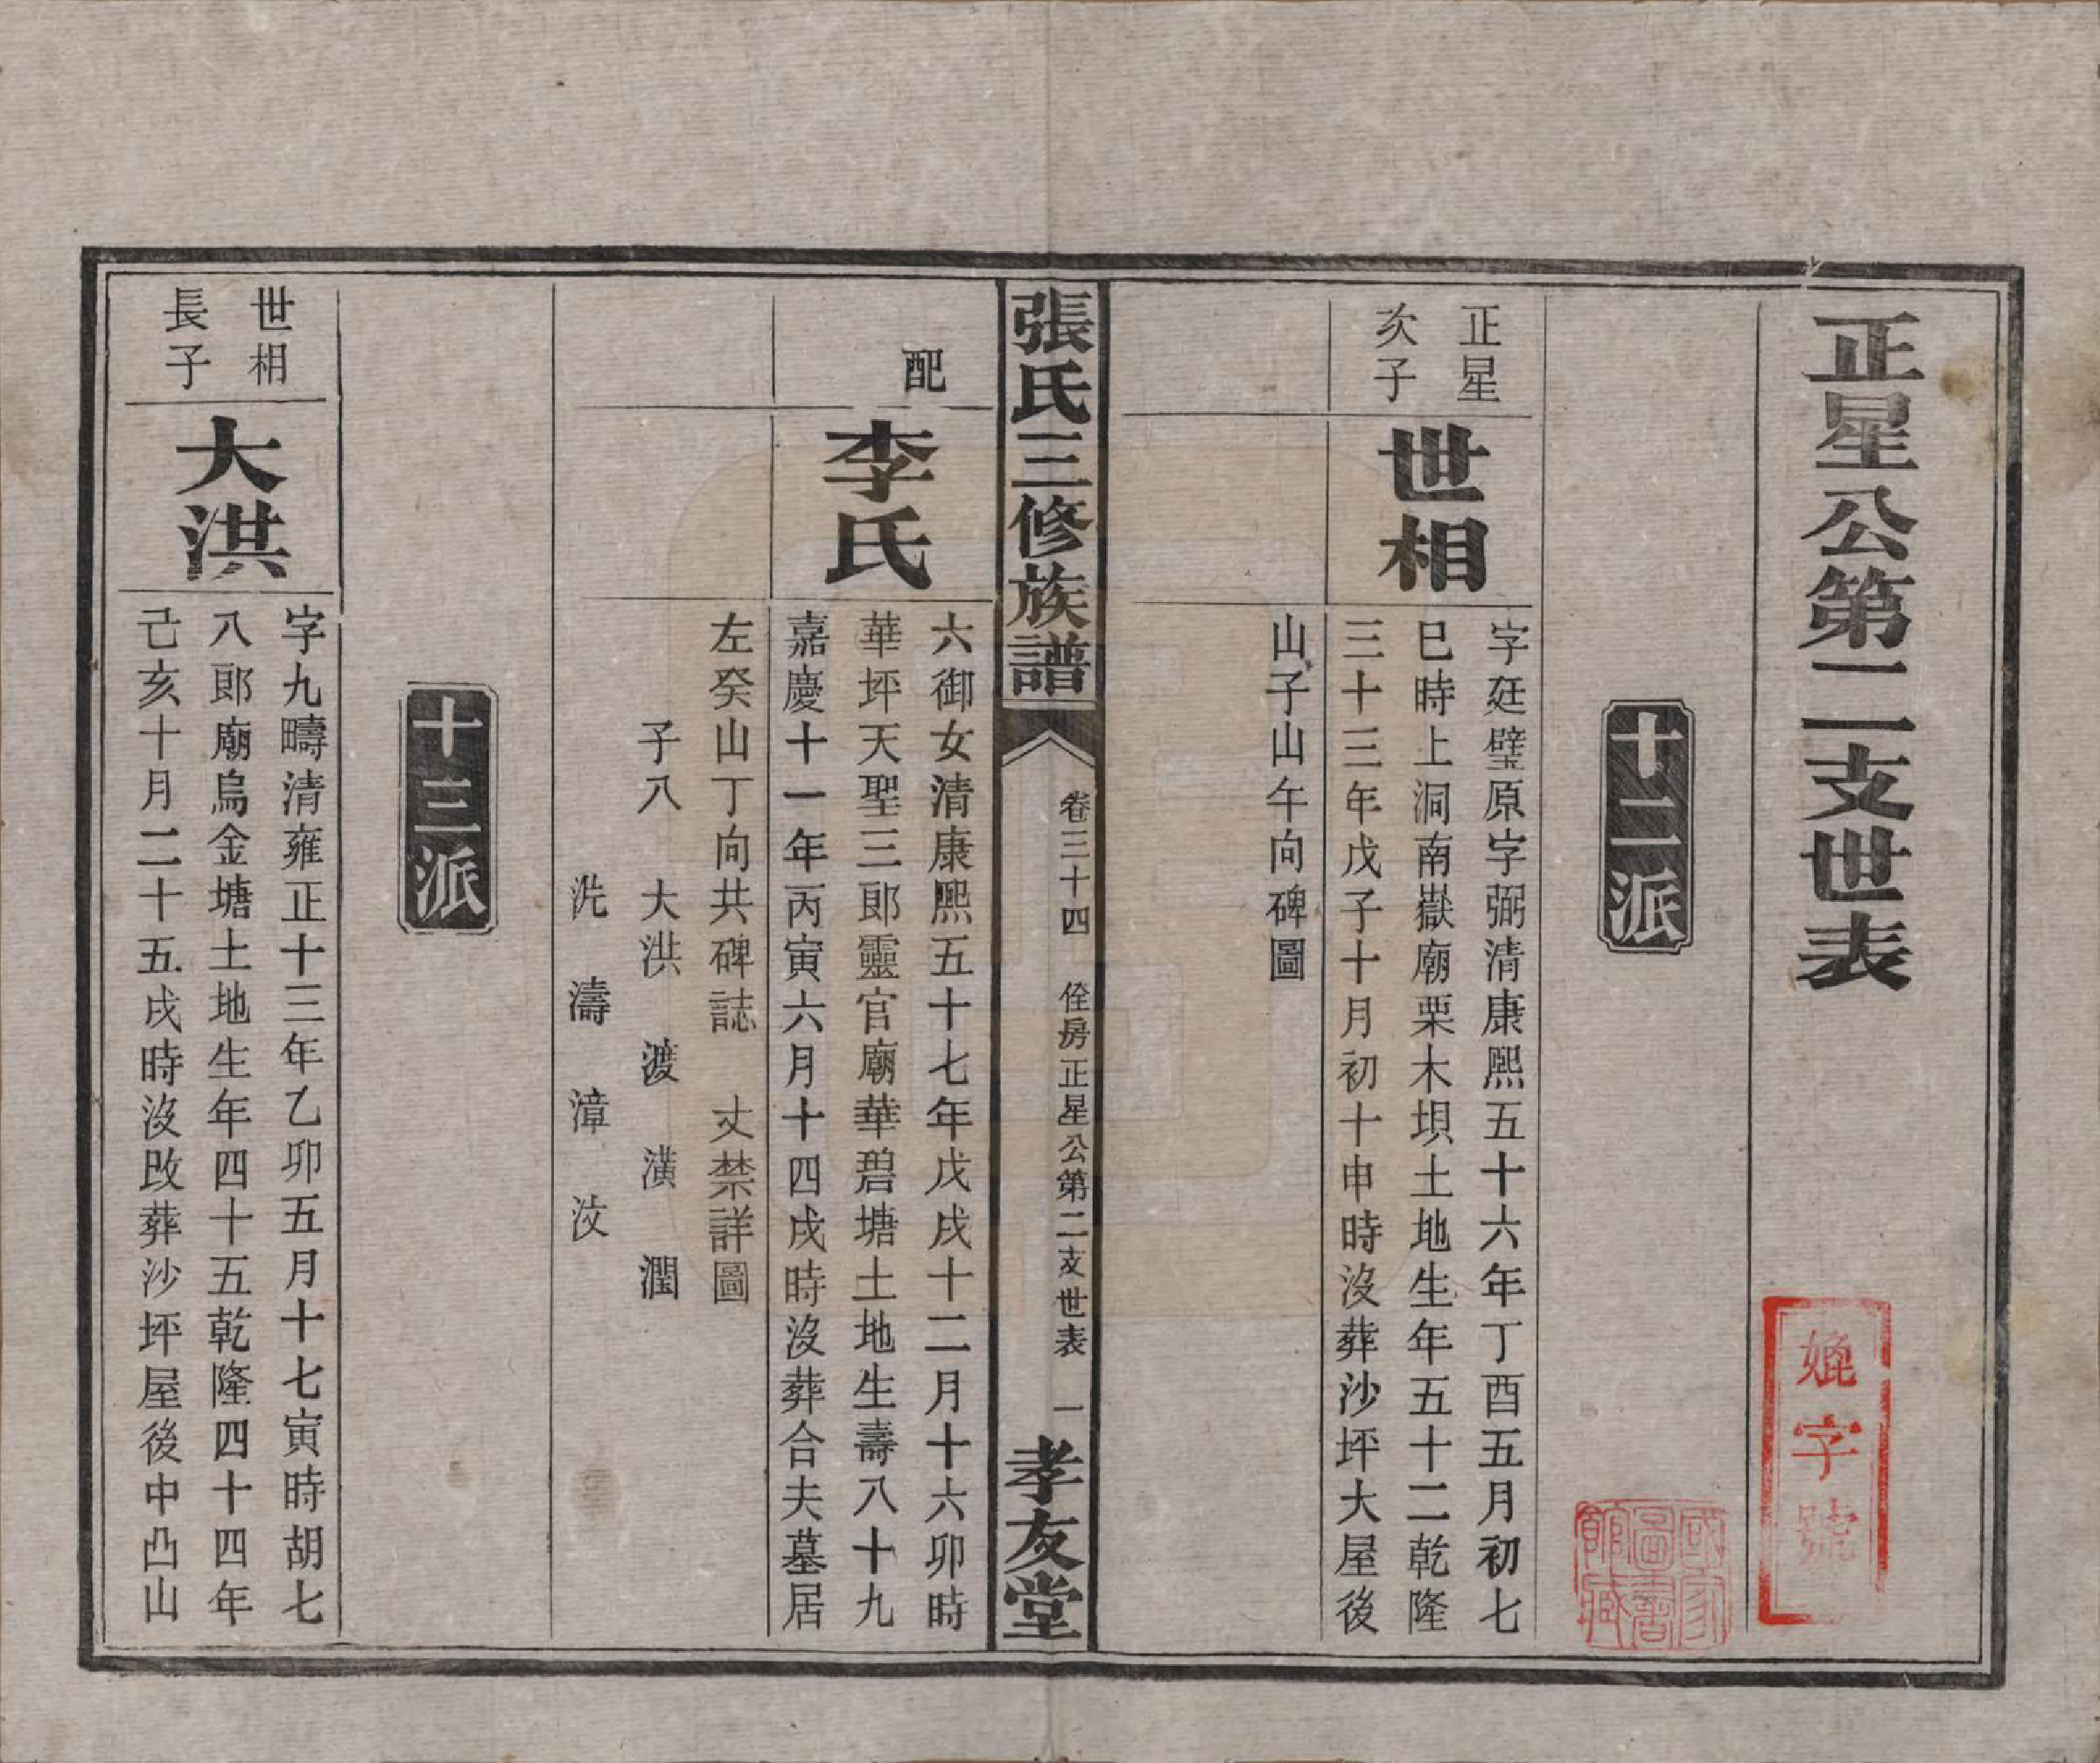 正星公第二支世表
十二派
正星
次子
世相
字廷璧原字弼清康熙五十六年丁酉五月初七
巳時上洞南嶽廟栗木垻土地生年五十二乾隆
三十三年戊子十月初十申時沒葬沙坪大屋後
山子山午向碑圖
張氏三修族譜
卷三十四
佺房正星公第二支世表
一
孝友堂
配
李氏
六御女清康熙五十七年戊戌十二月十六卯時
華坪天聖三郎靈官廟華碧塘土地生壽八十九
嘉慶十一年丙寅六月十四戌時沒葬合夫墓居
左癸山丁向共碑誌 丈禁詳圖
子八 大洪 渡 潢 潤
洸 濤 漳 汶
十三派
世相
長子
大洪
字九疇清雍正十三年乙卯五月十七寅時胡七
八郎廟烏金塘土地生年四十五乾隆四十四年
己亥十月二十五戌時沒改葬沙坪屋後中凸山
字號
國家圖書館藏